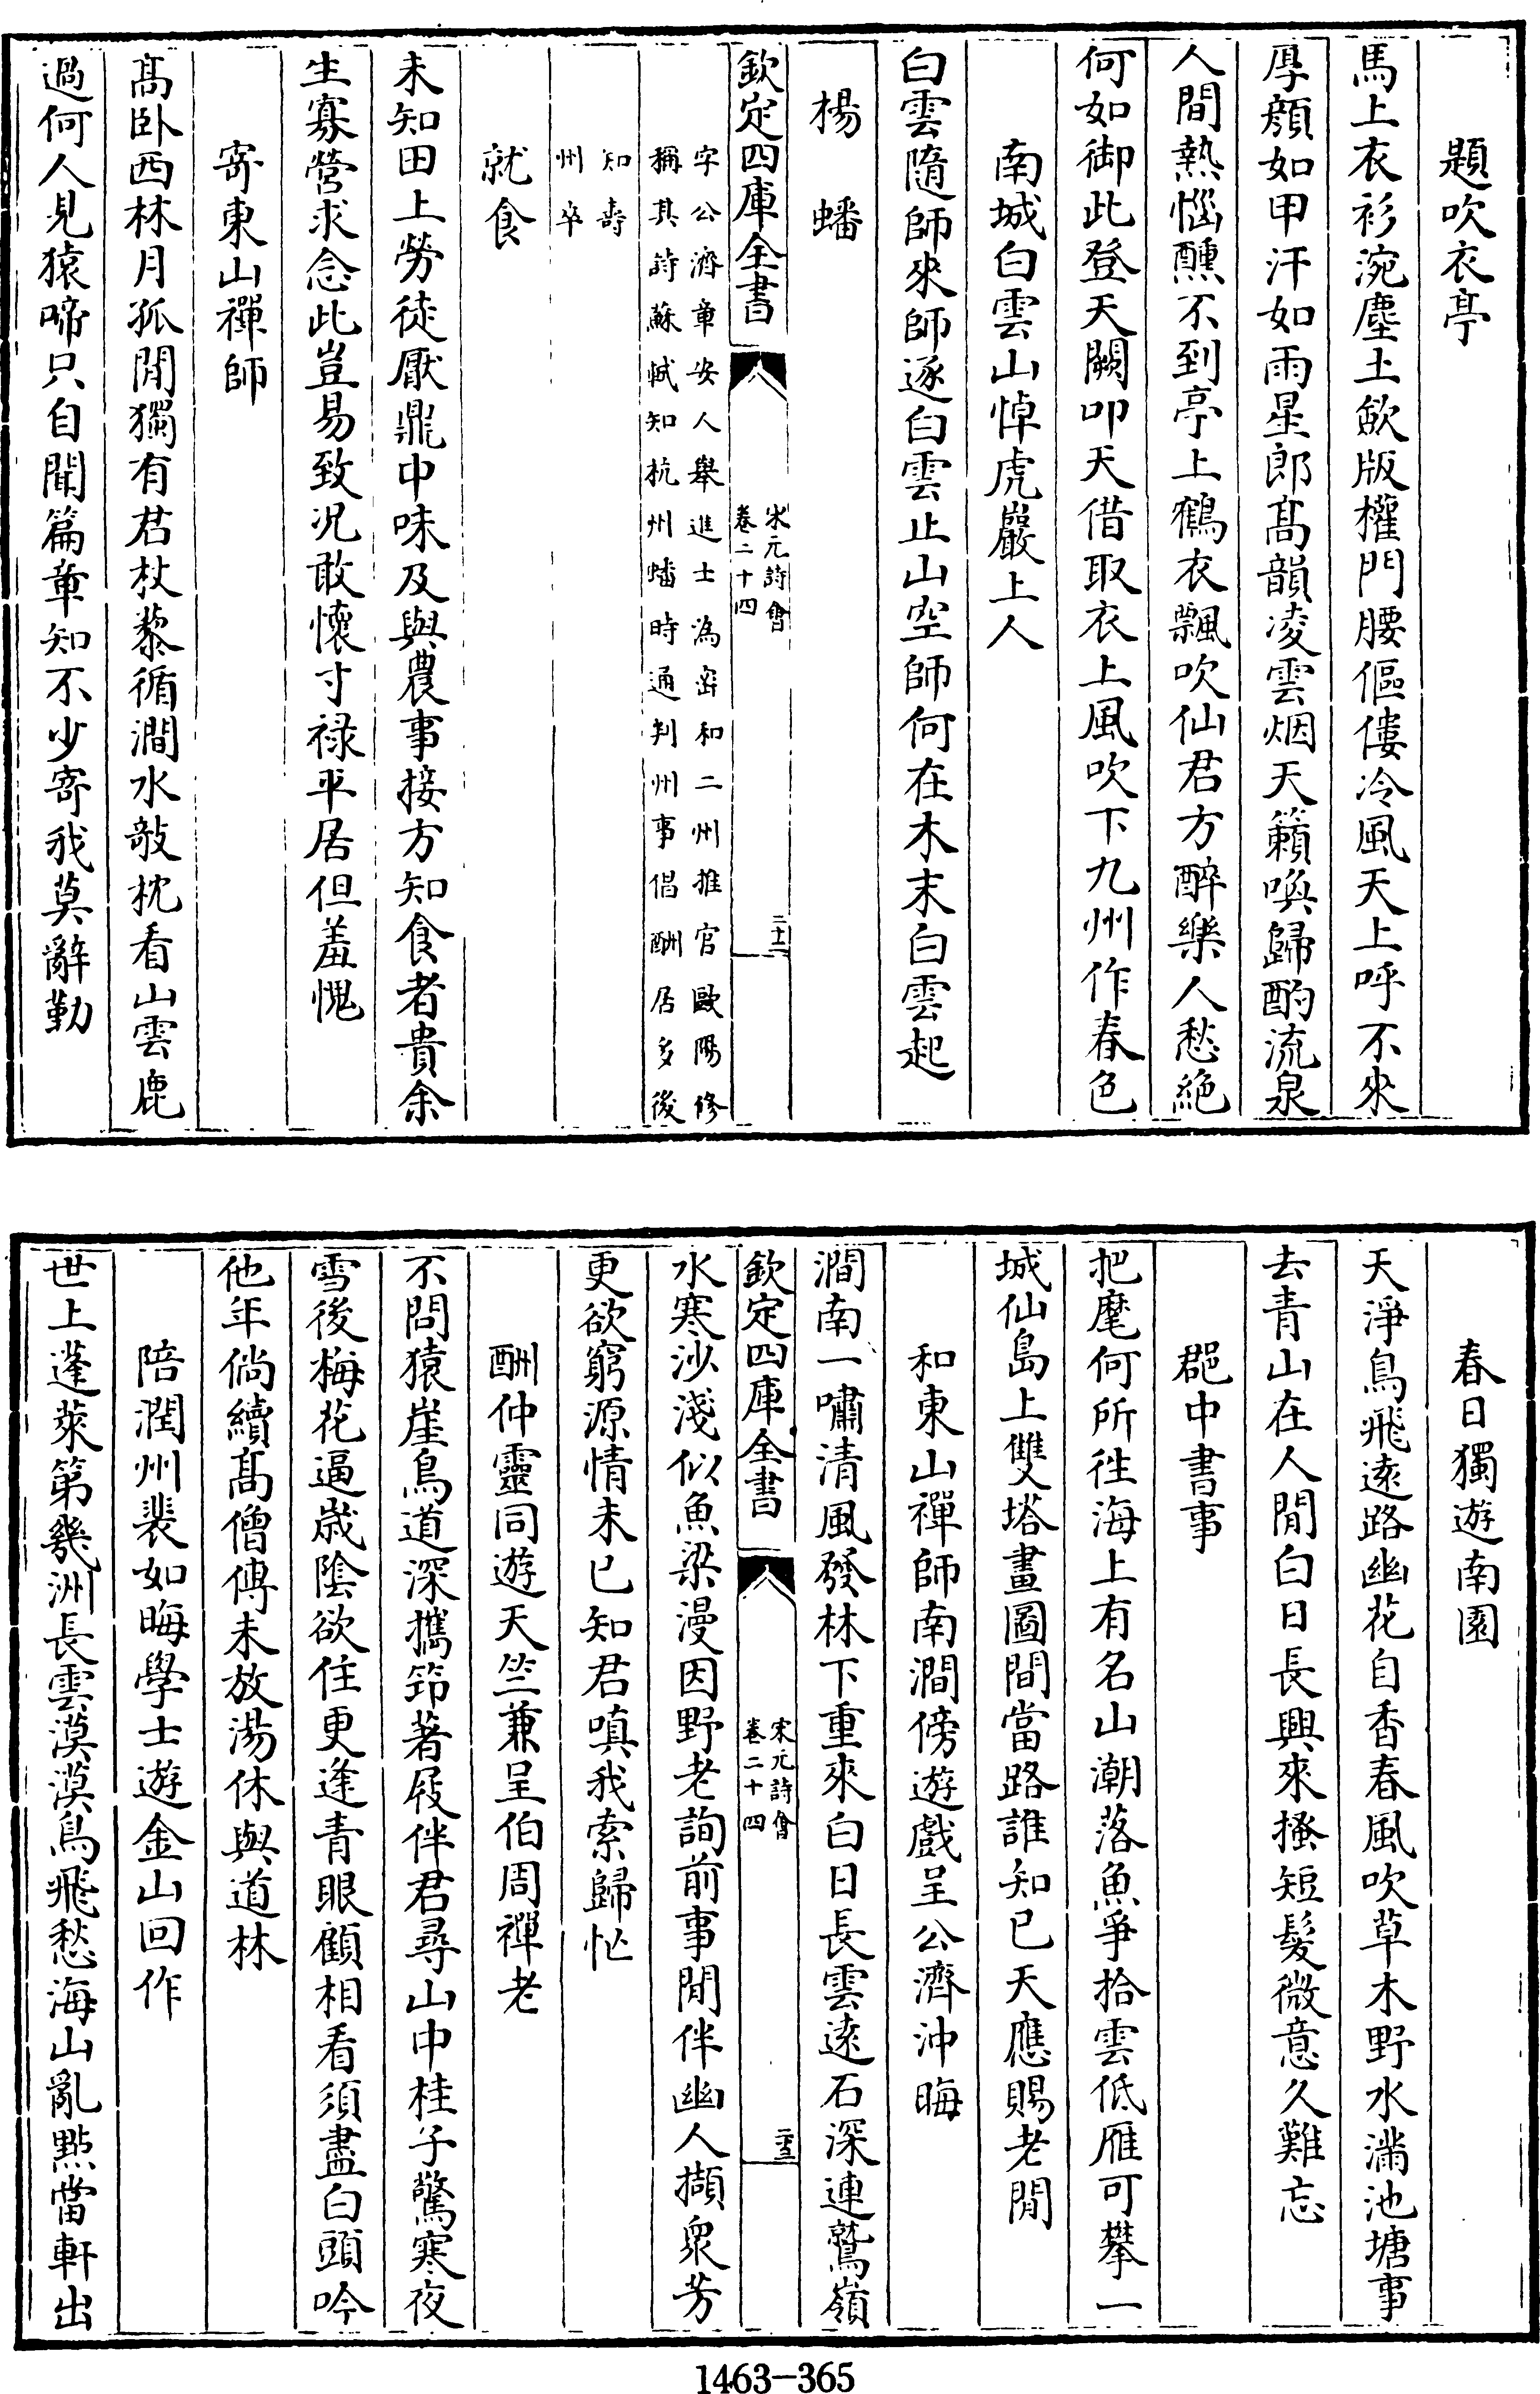 題吹衣亭
馬上衣衫涴塵土歛版權門腰傴僂冷風天上呼不來
厚顔如甲汗如雨星郎髙韻凌雲烟天籟喚歸酌流泉
人間熱惱醺不到亭上鶴衣飄吹仙君方醉樂人愁絶
何如御此登天闕叩天借取衣上風吹下九州作春色
南城白雲山悼虎巖上人
白雲隨師來師逐白雲止山空師何在木末白雲起
楊蟠
欽定四庫全書
宋元詩會
卷二十四
二十二
字公濟章安人舉進士為密和二州推官歐陽修
稱其詩蘇軾知杭州蟠時通判州事倡酬居多後
知壽
州卒
就食
未知田上勞徒厭鼎中味及與農事接方知食者貴余
生寡營求念此豈易致况敢懷寸禄平居但羞愧
寄東山禪師
髙卧西林月孤閒獨有君杖藜循澗水敧枕看山雲鹿
過何人見猿啼只自聞篇章知不少寄我莫辭勤
春日獨遊南園
天淨鳥飛遠路幽花自香春風吹草木野水滿池塘事
去青山在人閒白日長興來搔短髮微意久難忘
郡中書事
把麾何所徃海上有名山潮落魚爭拾雲低雁可攀一
城仙島上雙塔畫圖間當路誰知已天應賜老閒
和東山禪師南澗傍遊戲呈公濟沖晦
澗南一嘯清風發林下重來白日長雲逺石深連鷲嶺
欽定四庫全書
宋元詩會
卷二十四
二十三
水寒沙淺似魚梁漫因野老詢前事閒伴幽人擷衆芳
更欲窮源情未已知君嗔我索歸忙
酬仲靈同遊天竺兼呈伯周禪老
不問猿崖鳥道深攜筇著屐伴君尋山中桂子驚寒夜
雪後梅花逼歲陰欲住更逢青眼顧相看須盡白頭吟
他年倘續髙僧傳未放湯休與道林
陪潤州裴如晦學士遊金山回作
世上蓬萊第幾洲長雲漠漠鳥飛愁海山亂點當軒出
1463-365